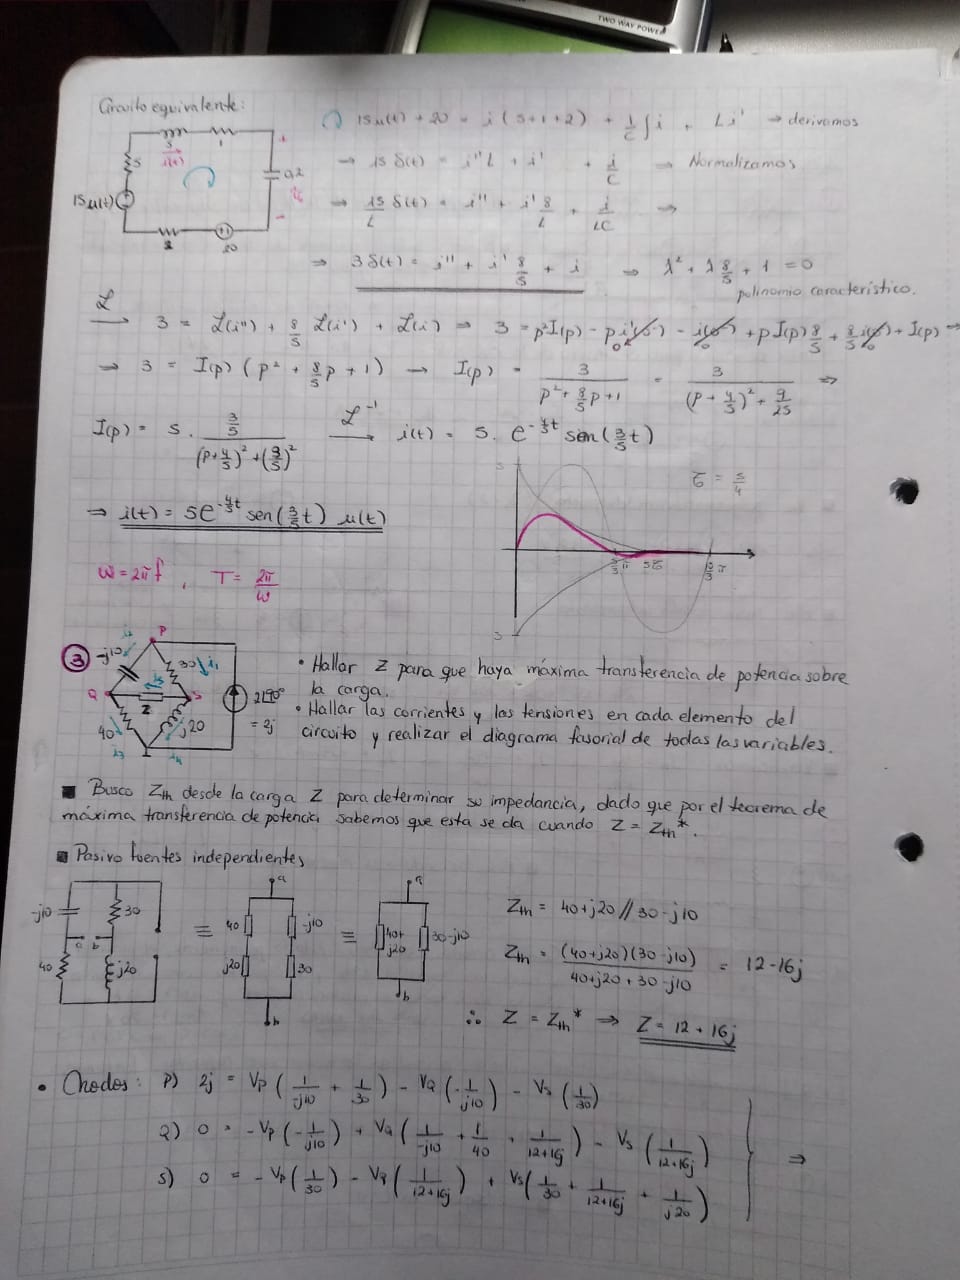 TWO WAY POWER
Circuito equivalente:
15μ(t) + 20 = i (5+1+2) + 1/C ∫i + Li' → derivamos
→ 15 δ(t) = i''L + i' + i/C → Normalizamos
→ 15/L δ(t) = i'' + i' 8/L + i/LC →
⇒ 3δ(t) = i'' + i' 8/5 + i ⇒ λ² + λ 8/5 + 1 = 0
polinomio característico.
5 1 5 i(t) 0,2 + − 15μ(t) 2 20
ℒ→ 3 = ℒ(i'') + 8/5 ℒ(i') + ℒ(i) ⇒ 3 = p²I(p) - p i(0⁻) - i(0⁻) + pI(p) 8/5 + 8/5 i(0⁻) + I(p) →
→ 3 = I(p) (p² + 8/5 p + 1) → I(p) = 3/(p² + 8/5 p + 1) = 3/((p + 4/5)² + 9/25) ⇒
I(p) = 5 . (3/5)/((p+4/5)² + (3/5)²) ℒ⁻¹→ i(t) = 5 . e^(-4/5 t) sen(3/5 t)
5 τ = 5/4
⇒ i(t) = 5e^(-4/5 t) sen(3/5 t) μ(t)
5/3 π 5τ 10/3 π
ω = 2πf , T = 2π/ω
5
③ P -j10 i2 30 i1 Q Z i5 S 40 i3 j20 i4 2∠90° = 2j
• Hallar Z para que haya máxima transferencia de potencia sobre
la carga.
• Hallar las corrientes y las tensiones en cada elemento del
circuito y realizar el diagrama fasorial de todas las variables.
■ Busco Zth desde la carga Z para determinar su impedancia, dado que por el teorema de
máxima transferencia de potencia sabemos que esta se da cuando Z = Zth*.
■ Pasivo fuentes independientes
-j10 30 a b 40 j20 ≡ a 40 -j10 j20 30 b ≡ a 40+j20 30-j10 b
Zth = 40+j20 // 30-j10
Zth = (40+j20)(30-j10)/(40+j20+30-j10) = 12-16j
∴ Z = Zth* ⇒ Z = 12 + 16j
• Cnodos: P) 2j = VP (1/-j10 + 1/30) - VQ (-1/j10) - VS (1/30)
Q) 0 = -VP (-1/j10) + VQ (1/-j10 + 1/40 + 1/12+16j) - VS (1/12+16j) ⇒
S) 0 = -VP (1/30) - VQ (1/12+16j) + VS (1/30 + 1/12+16j + 1/j20)